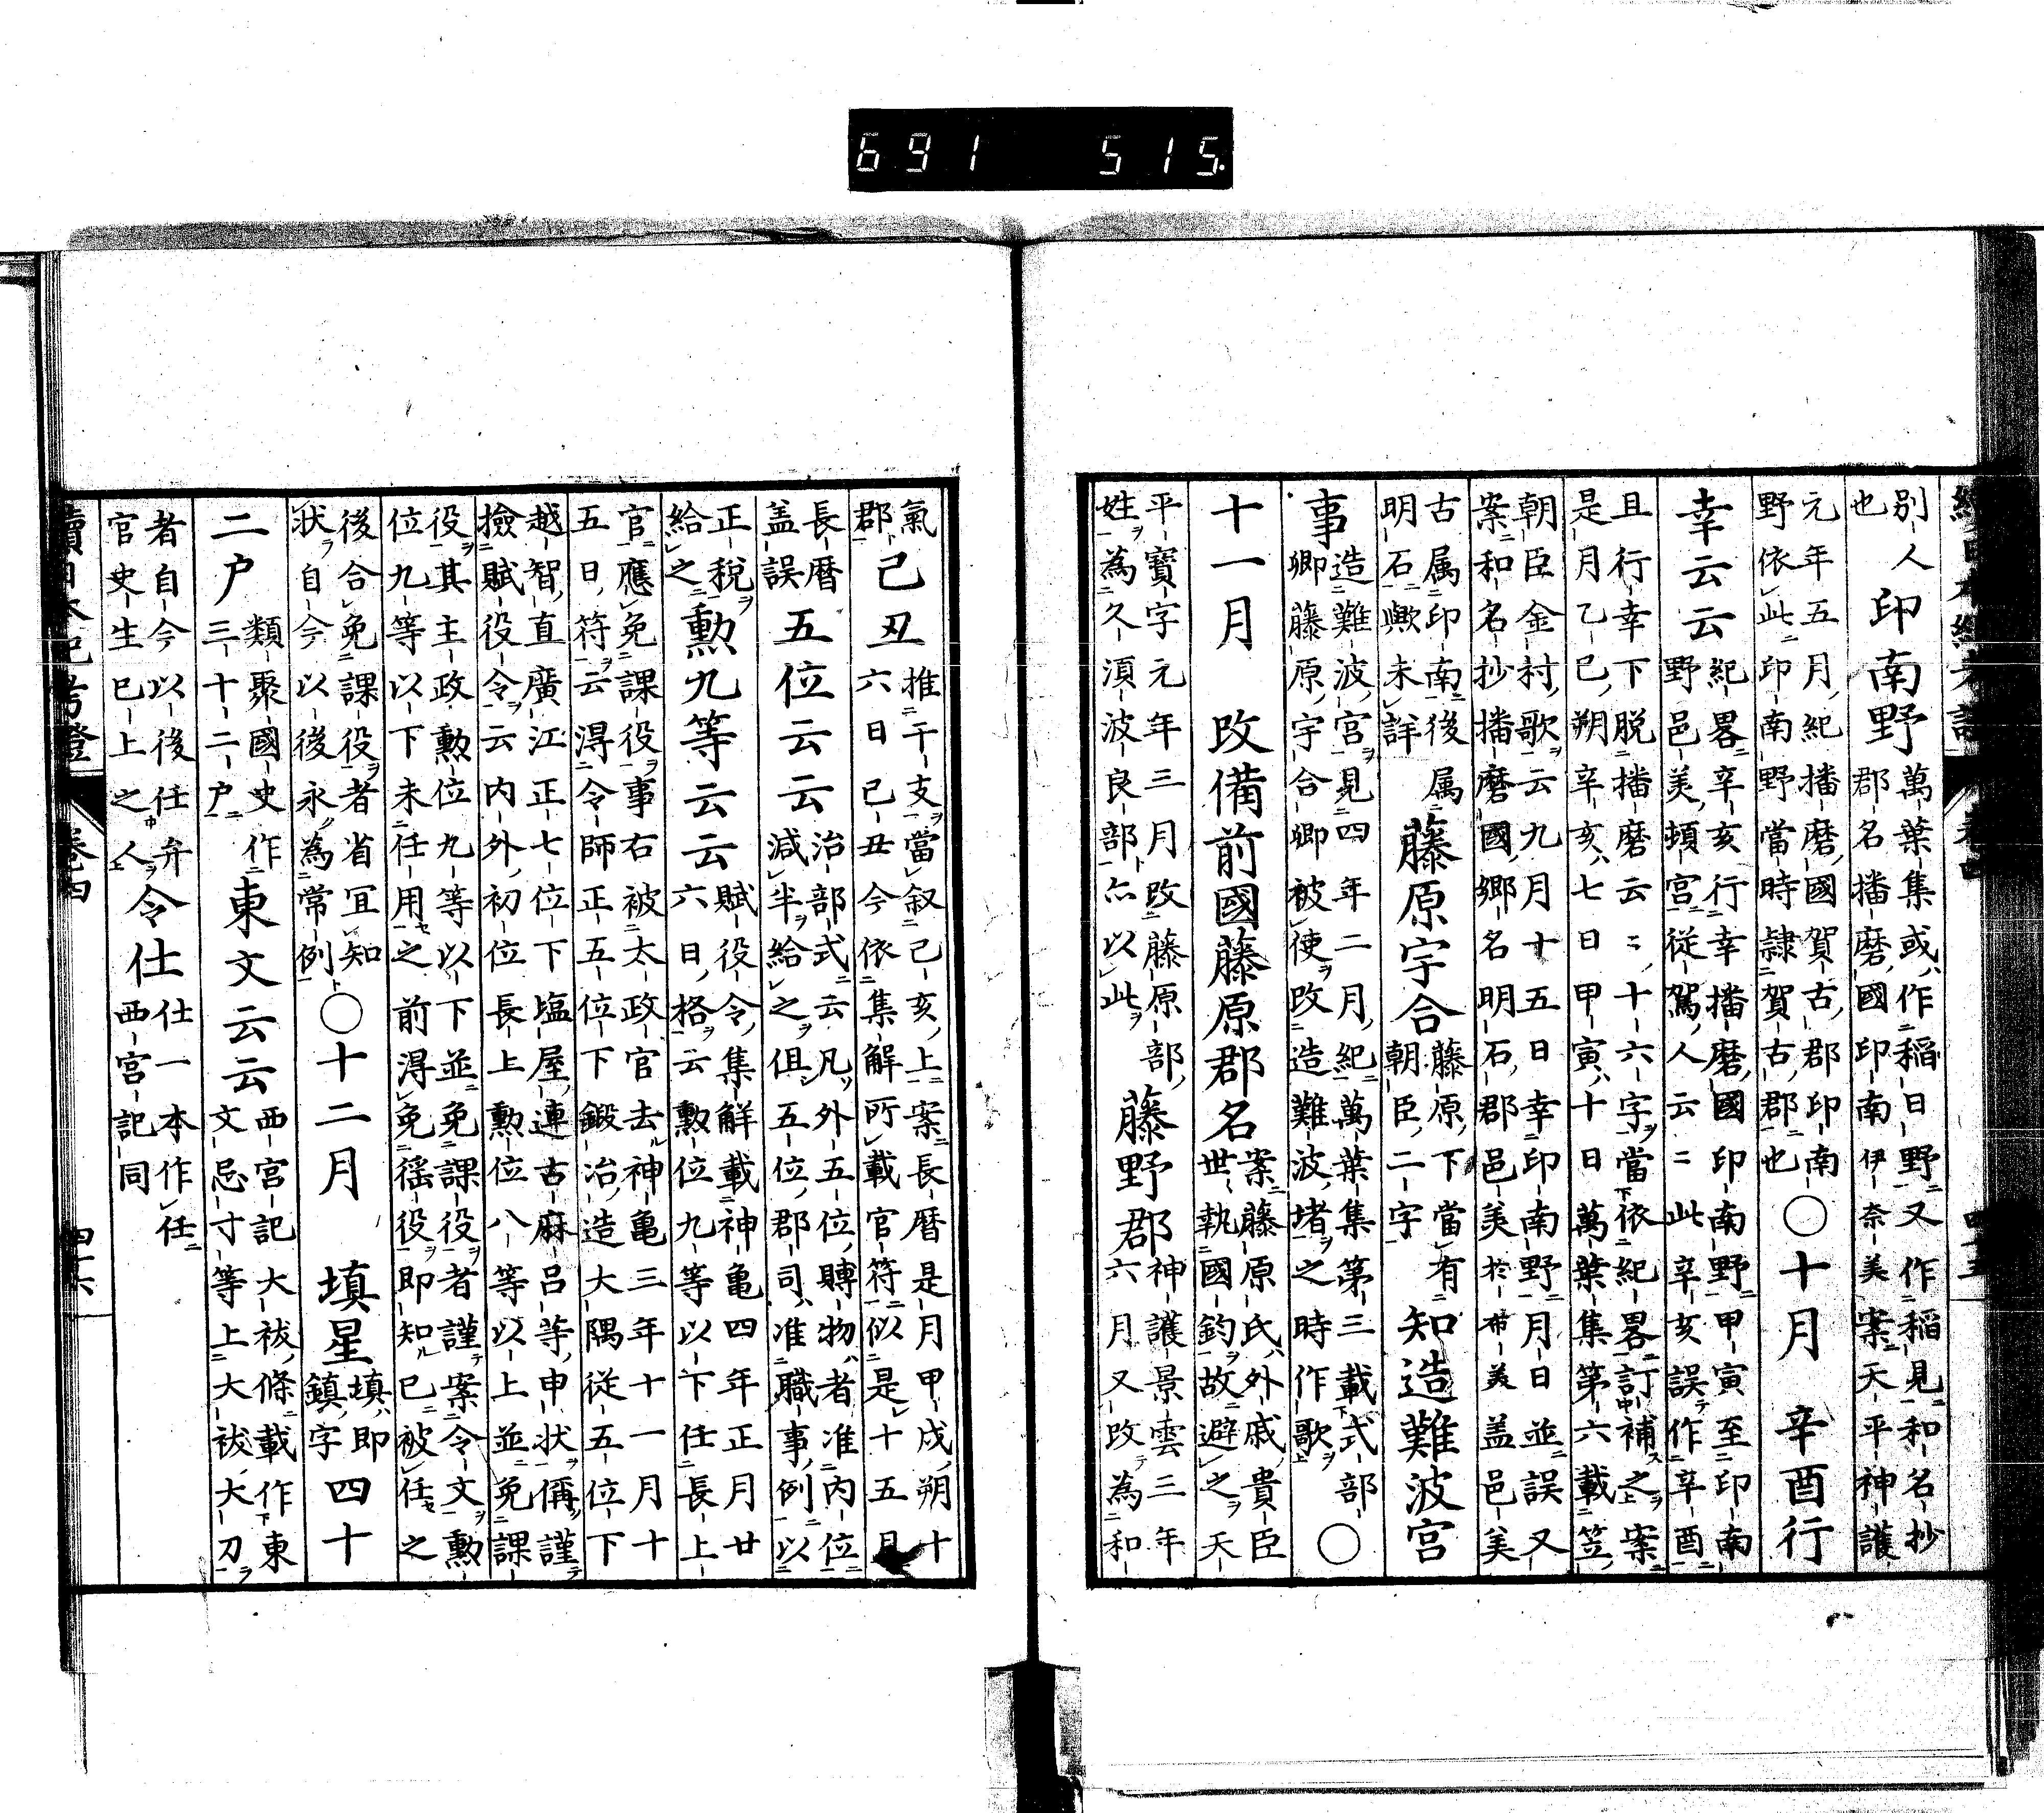 691 515.
別人 印南野 萬葉集或ハ作稲日野又作稲見和名抄
也 郡名播磨國印南伊奈美案天平神護
元年五月紀播磨國賀古郡印南
野依此印南野當時隷賀古郡也 〇十月 辛酉行
幸云云 紀畧辛亥行幸播磨國印南野甲寅至印南
野邑美頓宮従駕人云〻此辛亥誤作辛酉
且行幸下脱播磨云〻十六字當依紀畧訂補之案
是月乙巳朔辛亥ハ七日甲寅ハ十日萬葉集第六載笠
朝臣金村歌云九月十五日幸印南野月日並誤又
案和名抄播磨國郷名明石郡邑美於布美盖邑美
古属印南後属
明石歟未詳 藤原宇合 藤原下當有
朝臣二字 知造難波宮
事 造難波宮見四年二月紀萬葉集第三載式部
卿藤原宇合卿被使改造難波堵之時作歌 〇
十一月 改備前國藤原郡名 案藤原氏ハ外戚貴臣
世執國鈞故避之天
平寶字元年三月改藤原部
姓為久須波良部亦以此 藤野郡 神護景雲三年
六月又改為和
氣
郡 己丑 推干支當叙己亥上案長暦是月甲戌朔十
六日己丑今依集解所載官符似是十五日
長暦
盖誤 五位云云 治部式云凡外五位賻物ハ者准内位
減半給之但五位郡司ハ准職事例以
正税
給之 勲九等云云 賦役令集解載神亀四年正月廿
六日格云勲位九等以下任長上
官應免課役事右被太政官去神亀三年十一月十
五日符云淂令師正五位下鍛冶造大隅従五位下
越智直廣江正七位下塩屋連古麻呂等申状偁謹
撿賦役令云内外初位長上勲位八等以上並免課
役其主政勲位九等以下並免課役者謹案令文勲
位九等以下未任用之前淂免徭役即知已被任之
後合免課役者省宜知
状自今以後永為常例 〇十二月 填星 填ハ即
鎮字 四十
二户 類聚國史作
三十二户 東文云云 西宮記大祓條載作東
文忌寸等上大祓大刀
者自今以後任弁
官史生巳上之人 令仕 仕一本作任
西宮記同
續日本紀考證 巻四 四十六